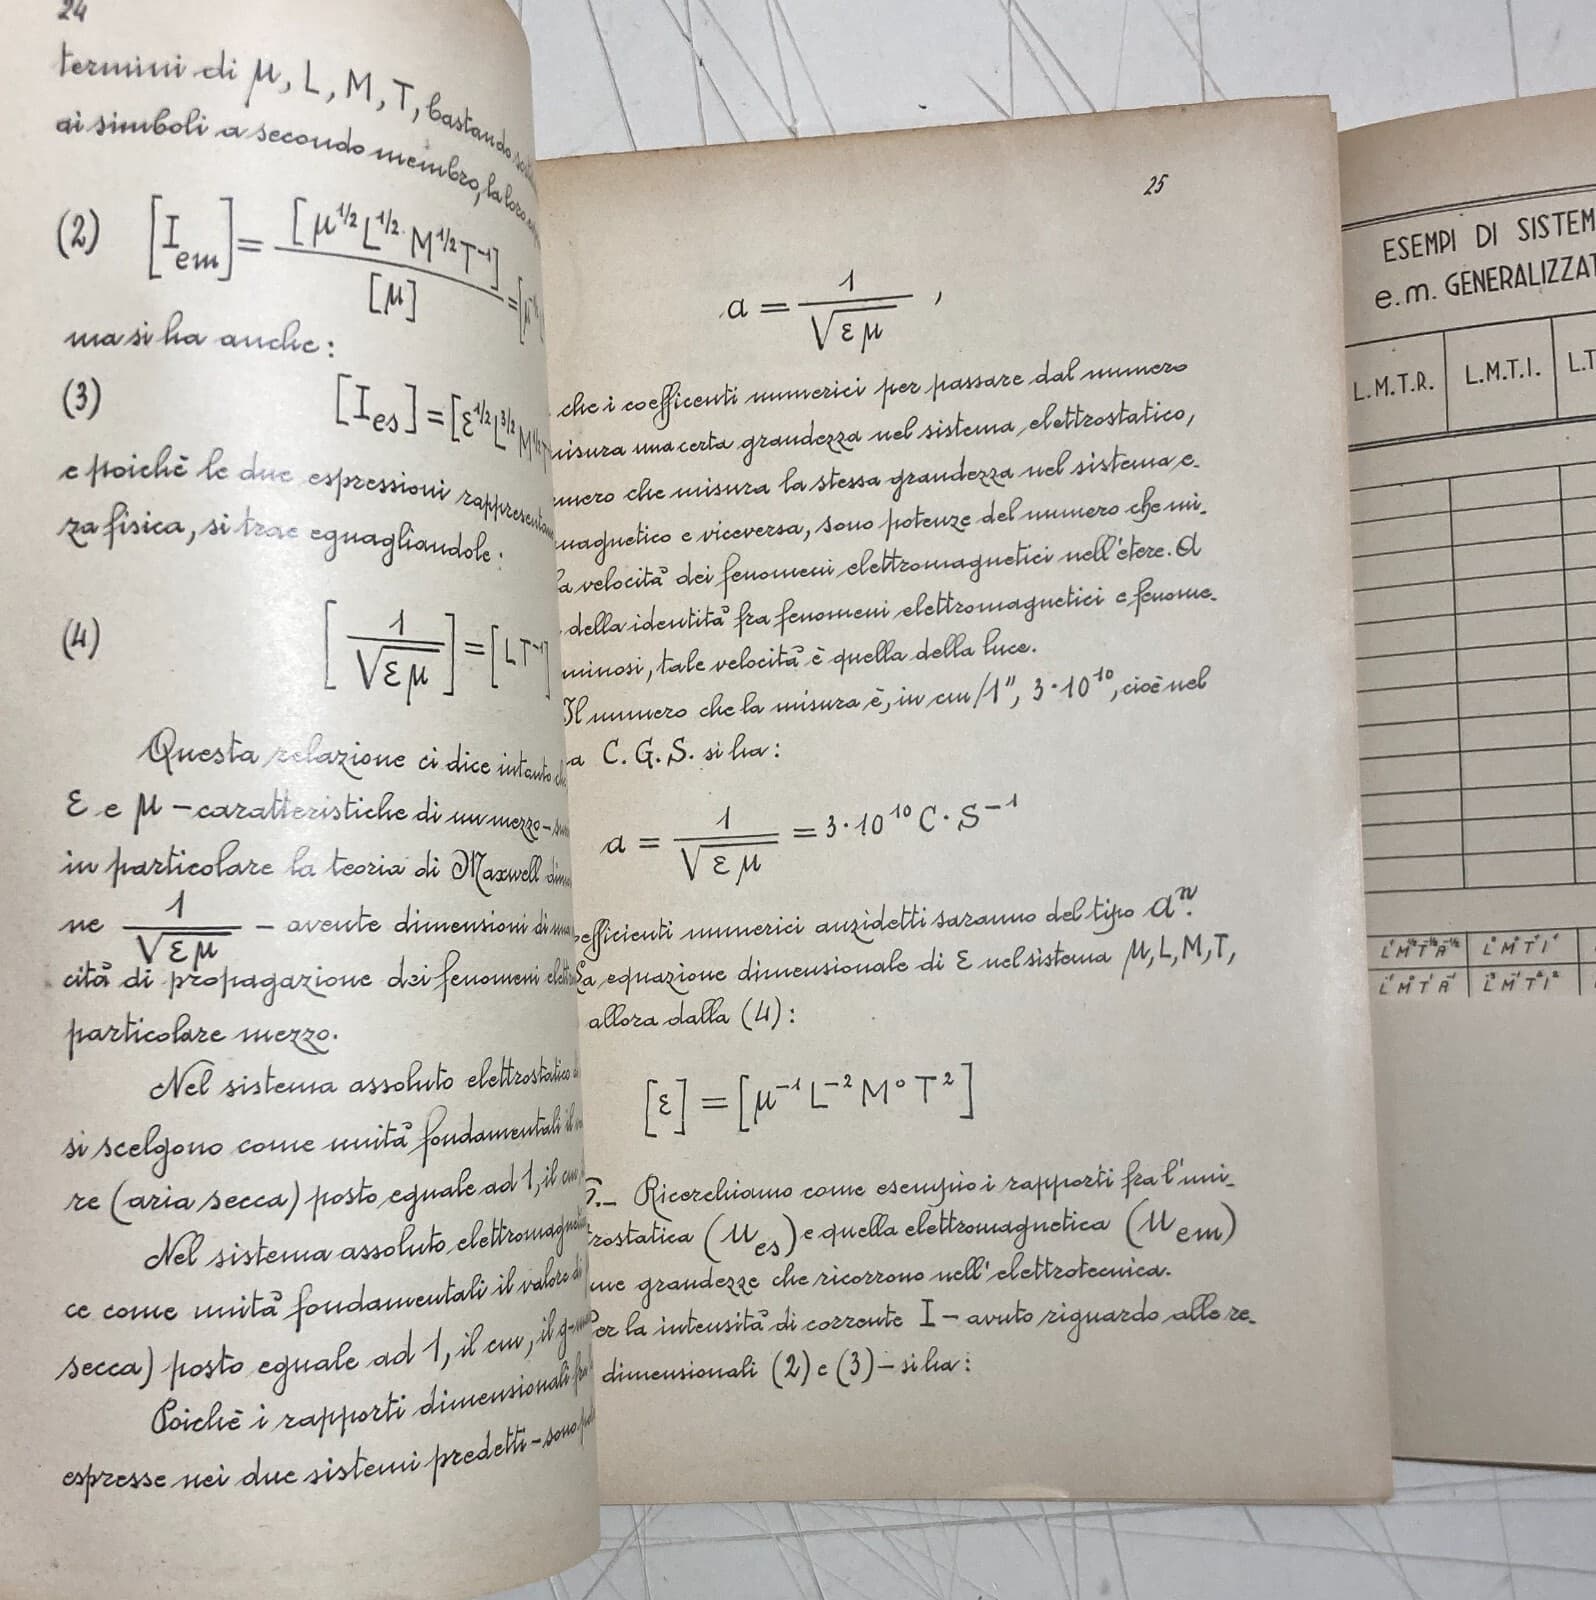 24
termini di μ, L, M, T, bastando
ai simboli a secondo membro, la loro
(2) [I em] = [μ^1/2 L^1/2 M^1/2 T^-1] / [μ] = [μ
ma si ha anche:
(3) [I es] = [ε^1/2 L^3/2 M^1/2
e poichè le due espressioni
za fisica, si trae eguagliandole:
(4) [1 / √εμ] = [L T^-1]
Questa relazione ci dice intanto
ε e μ - caratteristiche di un mezzo -
in particolare la teoria di Maxwell
ne 1 / √εμ - avente dimensioni di
cità di propagazione dei fenomeni
particolare mezzo.
Nel sistema assoluto elettrostatico
si scelgono come unità fondamentali il
re (aria secca) posto eguale ad 1, il cm,
Nel sistema assoluto elettromagne
ce come unità fondamentali il valore di
secca) posto eguale ad 1, il cm, il g-
Poichè i rapporti dimensionali
espresse nei due sistemi predetti - sono
25
a = 1 / √εμ ,
che i coefficenti numerici per passare dal numero
misura una certa grandezza nel sistema elettrostatico,
umero che misura la stessa grandezza nel sistema e-
magnetico e viceversa, sono potenze del numero che mi-
la velocità dei fenomeni elettromagnetici nell'etere. A
della identità fra fenomeni elettromagnetici e fenome-
minosi, tale velocità è quella della luce.
Il numero che la misura è, in cm/1", 3·10^10, cioè nel
a C. G. S. si ha:
a = 1 / √εμ = 3·10^10 C·S^-1
efficienti numerici anzidetti saranno del tipo a^n.
La equazione dimensionale di ε nel sistema μ, L, M, T,
allora dalla (4):
[ε] = [μ^-1 L^-2 M^0 T^2]
5._ Ricerchiamo come esempio i rapporti fra l'uni-
trostatica (U es) e quella elettromagnetica (U em)
une grandezze che ricorrono nell'elettrotecnica.
Per la intensità di corrente I - avuto riguardo alle re-
dimensionali (2) e (3) - si ha:
ESEMPI DI SISTEM
e.m. GENERALIZZAT
L.M.T.R. L.M.T.I. L.T